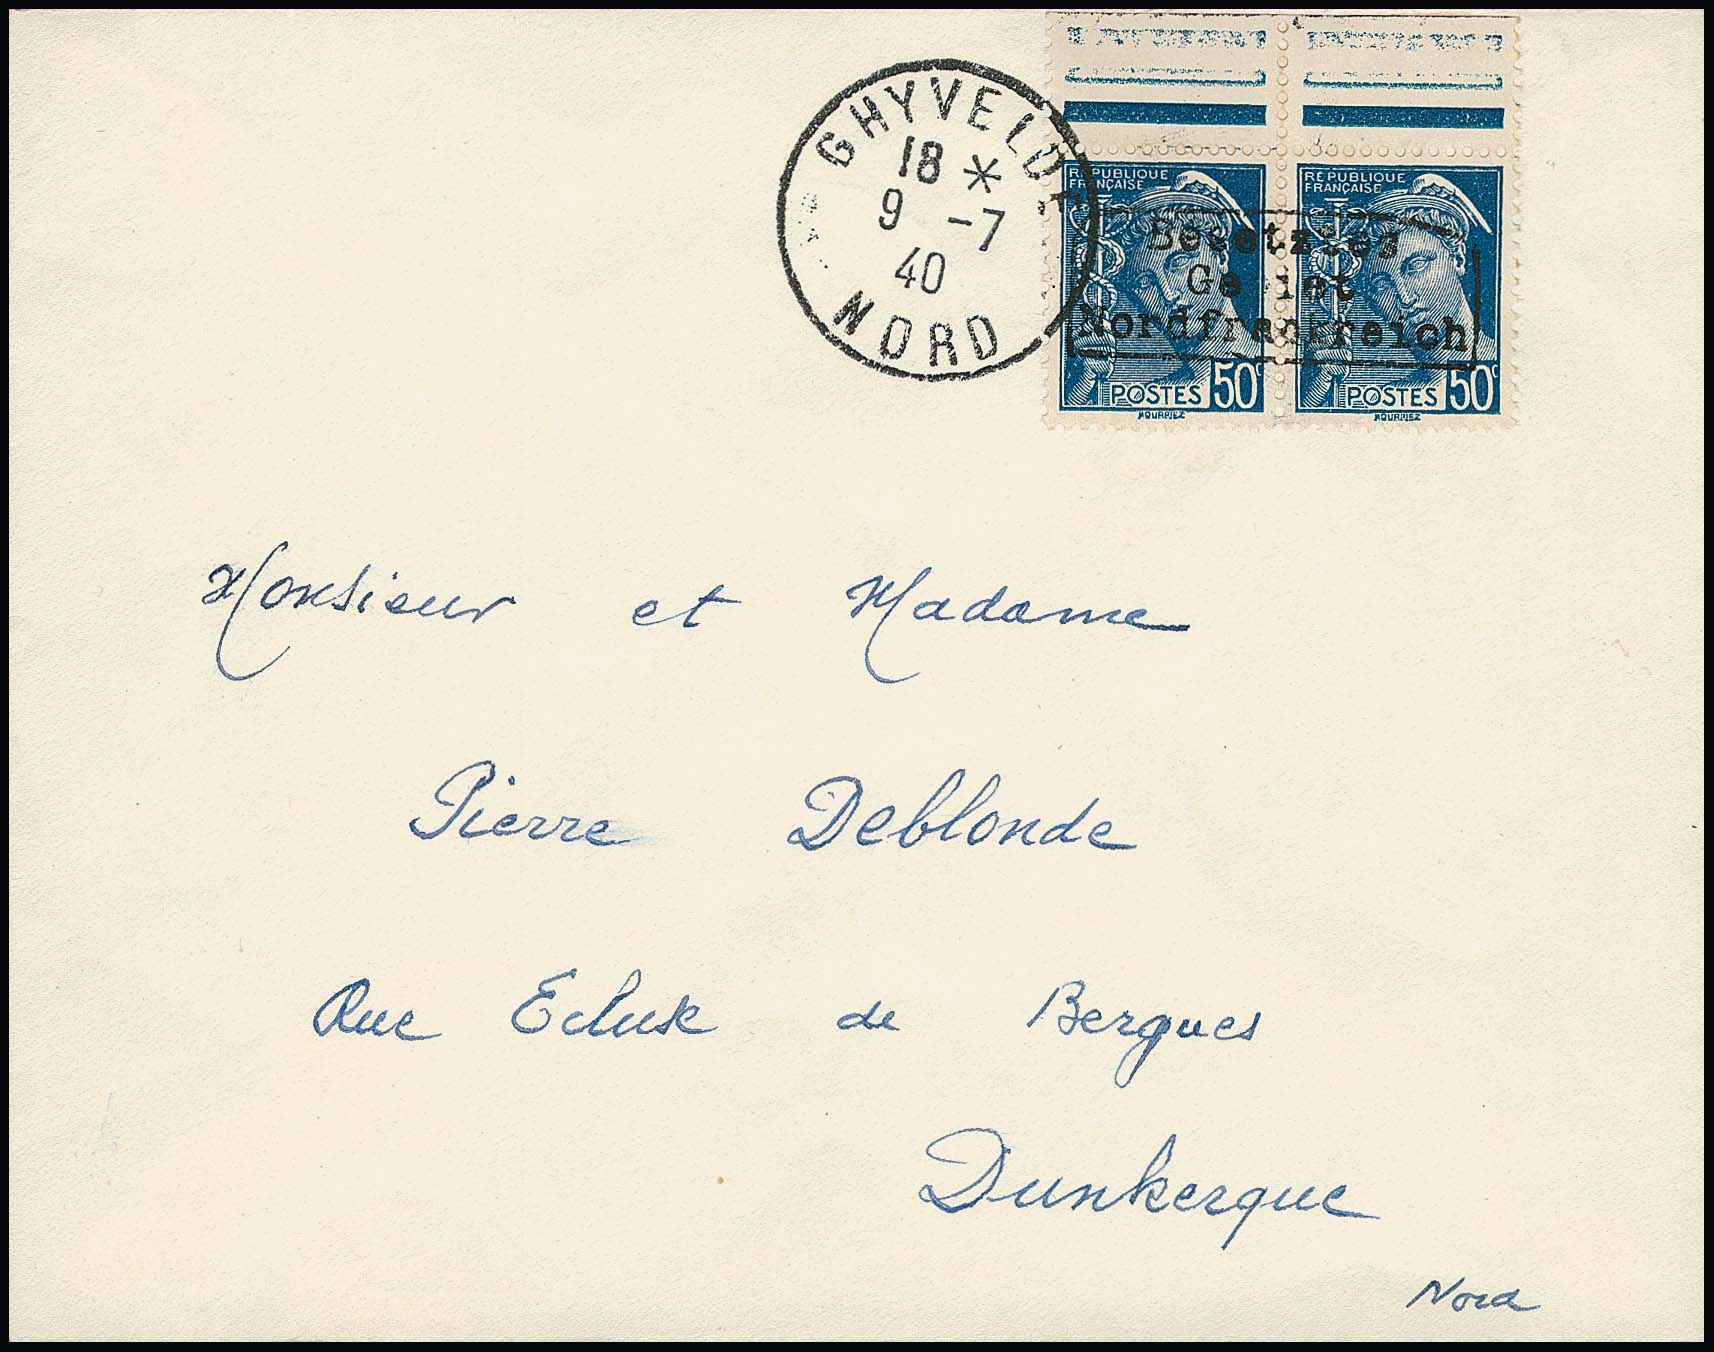 GHYVELDE
18 *
9 -7
40
NORD
RÉPUBLIQUE
FRANÇAISE
POSTES 50c
MOURRIEZ
RÉPUBLIQUE
FRANÇAISE
POSTES 50c
MOURRIEZ
Besetztes
Gebiet
Nordfrankreich
Monsieur et Madame
Pierre Deblonde
Rue Ecluse de Bergues
Dunkerque
Nord